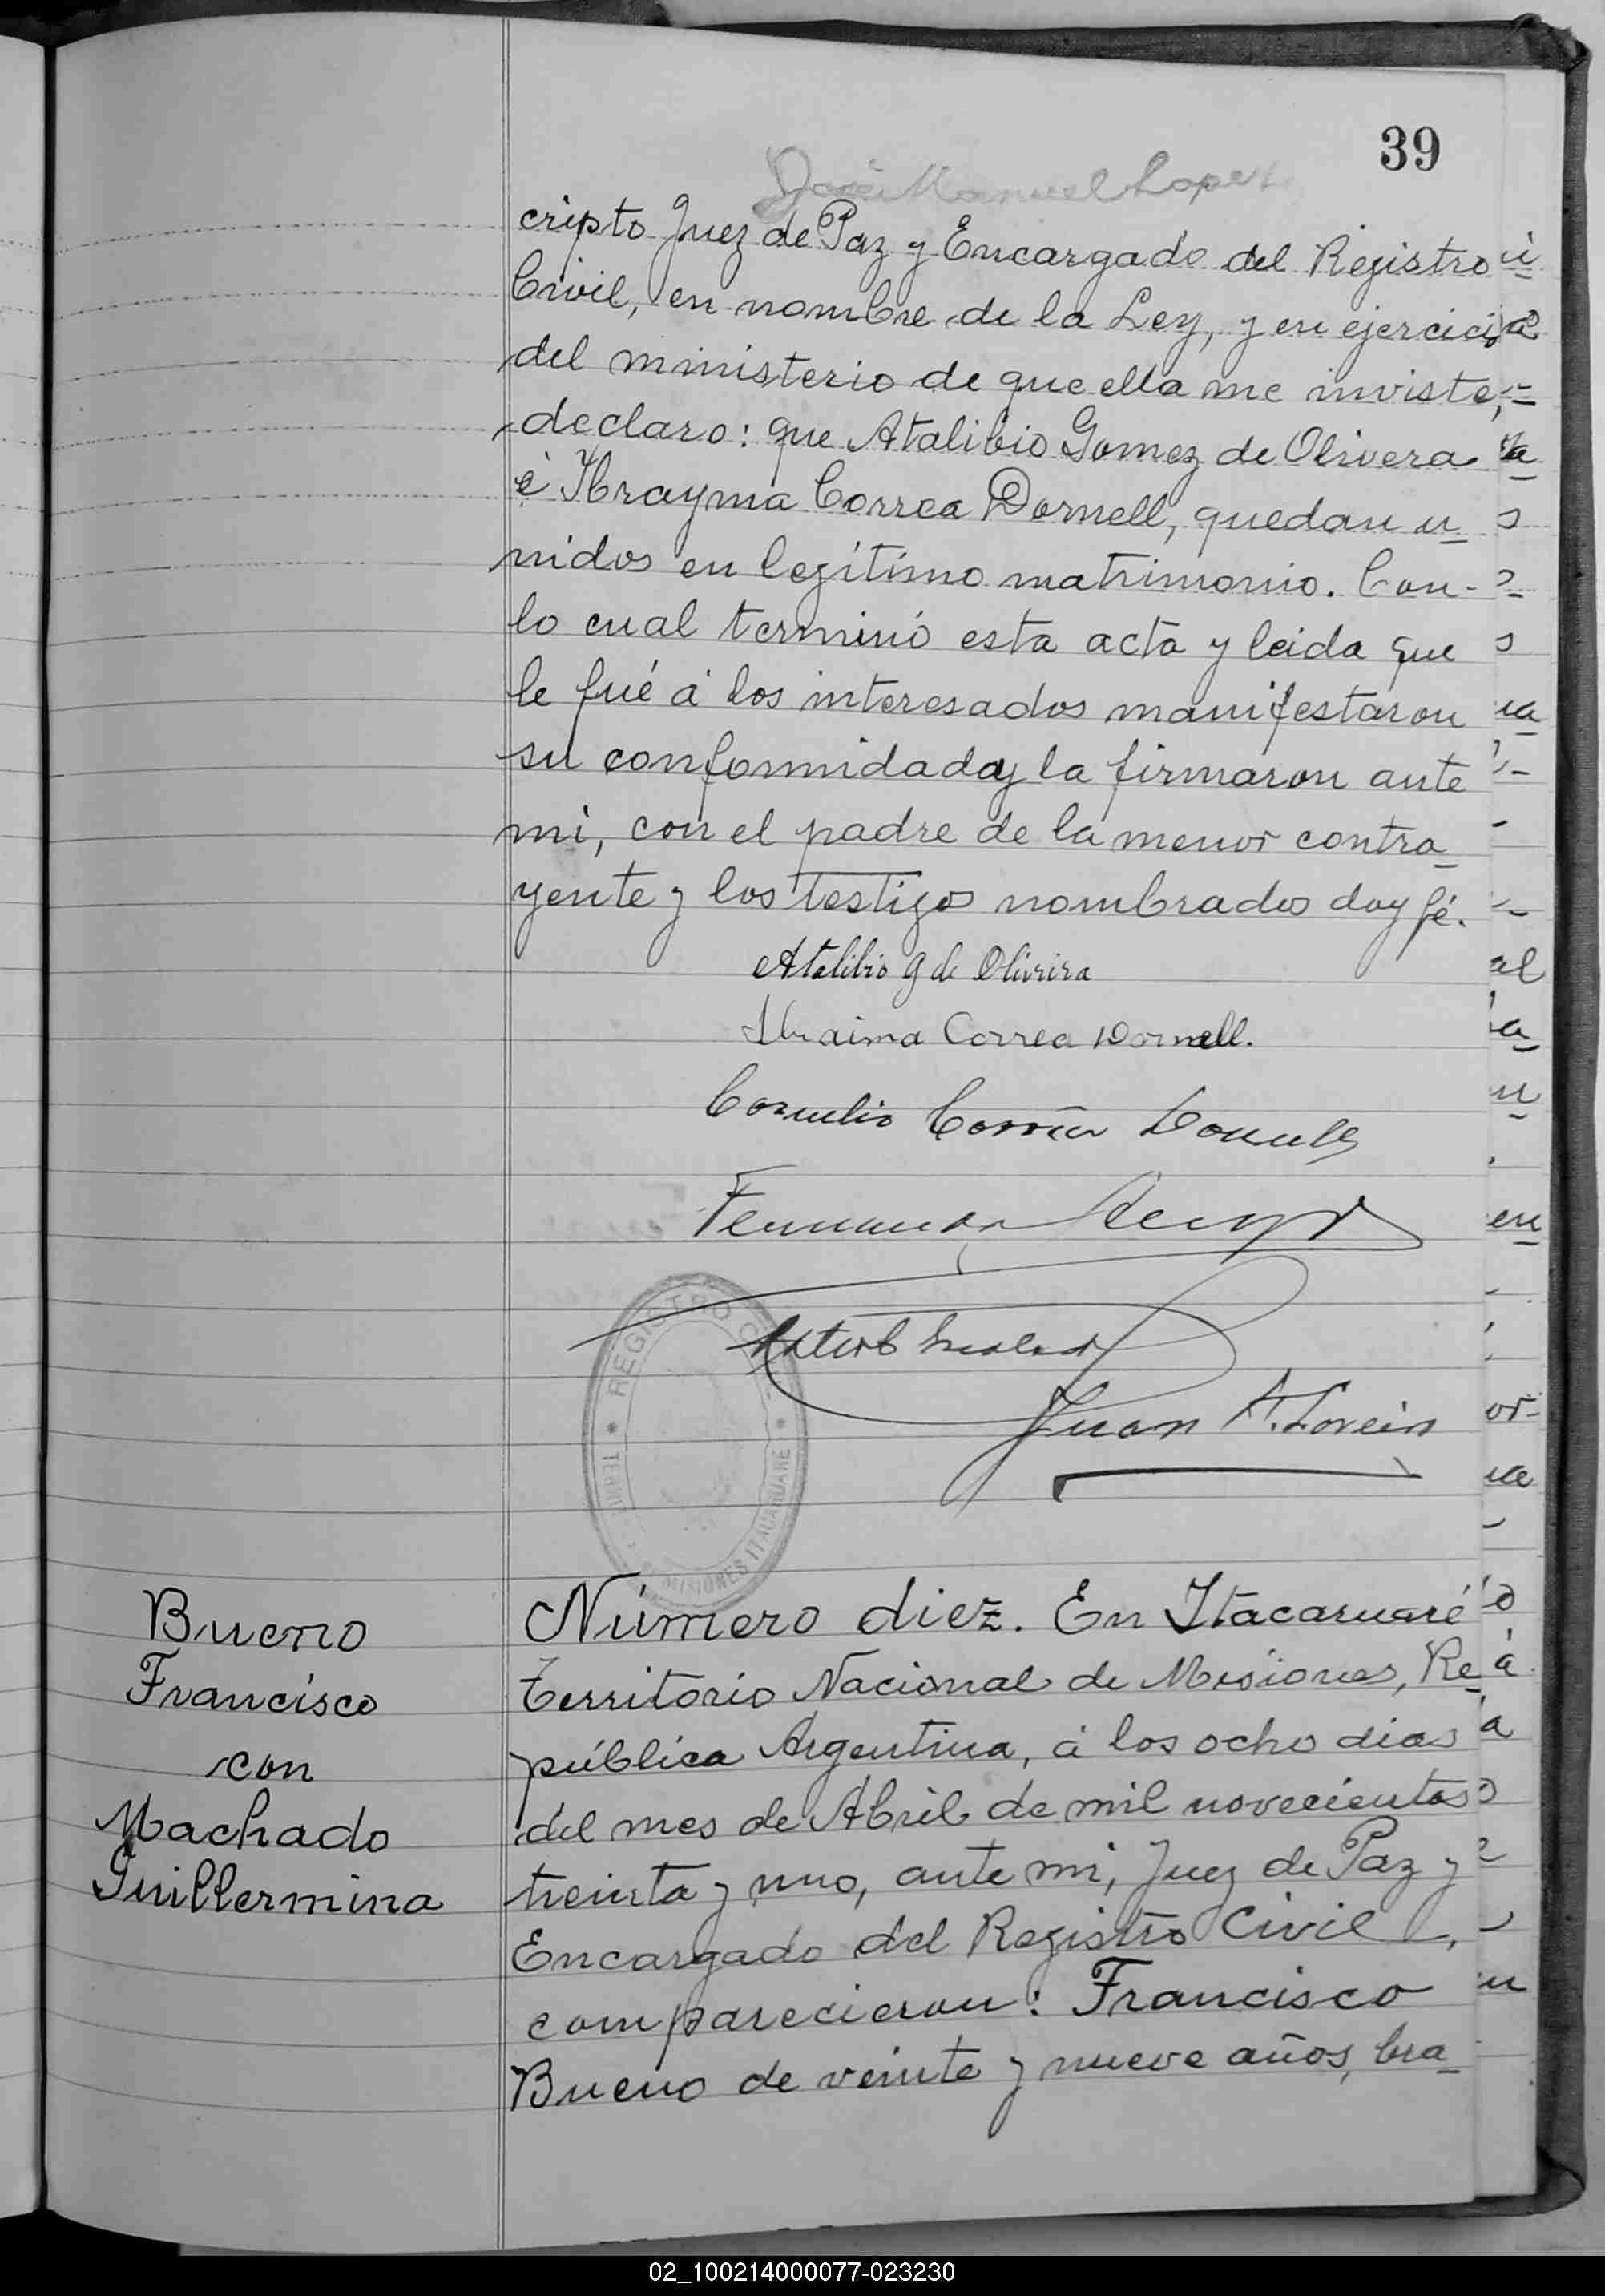 39
José Manuel Lopez
cripto Juez de Paz y Encargado del Registro
Civil, en nombre de la Ley, y en ejercicio
del ministerio de que ella me inviste,
declaro: que Atalibio Gomez de Olivera
é Ibrayma Correa Dornell, quedan u_
nidos en legítimo matrimonio. Con-
lo cual terminó esta acta y leida que
le fué á los interesados manifestaron
su conformidad y la firmaron ante
mi, con el padre de la menor contra_
yente y los testigos nombrados doy fé.
Atalibio G de Oliveira
Ibraima Correa Dornell.
Cornelio Corrêa Dornell
Juan A.
REGISTRO
MISIONES ITACARUARÉ
Número diez. En Itacaruaré
Bueno
Francisco
con
Machado
Guillermina
Territorio Nacional de Misiones, Re_
pública Argentina, á los ocho dias
del mes de Abril de mil novecientos
treinta y uno, ante mi, Juez de Paz y
Encargado del Registro Civil,
comparecieron: Francisco
Bueno de veinte y nueve años, bra_
02_100214000077-023230